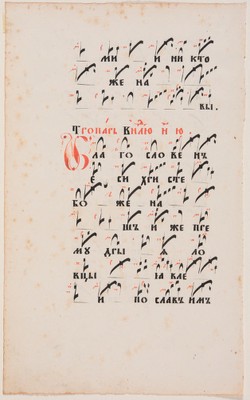 ми и ни кто
же на
вы.
Тропарь
Бла го сло ве нъ
е си хри сте
бо же на
шъ и же пре
му дры ѧ ло
вцы ꙗ вле
и по славъ имъ